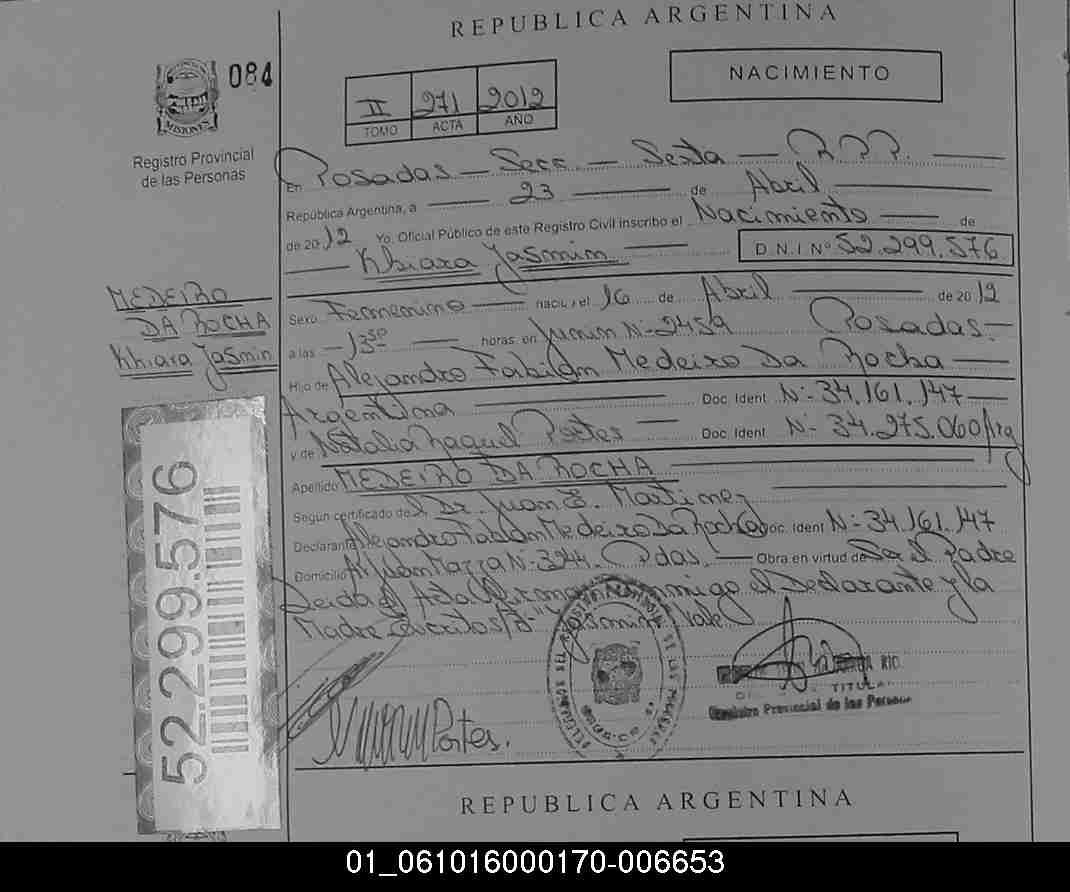 REPUBLICA ARGENTINA
084
NACIMIENTO
II 271 2012
TOMO ACTA AÑO
MISIONES
Registro Provincial
de las Personas
En Posadas — Secc. — Sexta — R.P.P. —
República Argentina, a — 23 — de Abril —
de 2012 Yo, Oficial Público de este Registro Civil inscribo el Nacimiento — de
— Khiara Jasmin — D.N.I Nº 52.299.576
MEDEIRO
DA ROCHA
Khiara Jasmin
Sexo Femenino — nació el 16 de Abril — de 2012
a las — 13:50 — horas en Junin N:-2459 Posadas.—
Hijo de Alejandro Fabián Medeiro Da Rocha —
Argentina — Doc. Ident N:- 34.161.147 —
y de Natalia Raquel Portes — Doc. Ident N:- 34.275.060/Arg
Apellido MEDEIRO DA ROCHA —
Según certificado del Dr. Juan E. Martinez —
Declarante Alejandro Fabián Medeiro Da Rocha Doc. Ident N:- 34.161.147
Domicilio N:-324. Pdas. — Obra en virtud de Ser el Padre
Leida el Acta Firman conmigo el Declarante y la
Madre Escritos/d- "Jasmin" Vale
TITULA
Registro Provincial de las Person
Portes.
52.299.576
REPUBLICA ARGENTINA
01_061016000170-006653